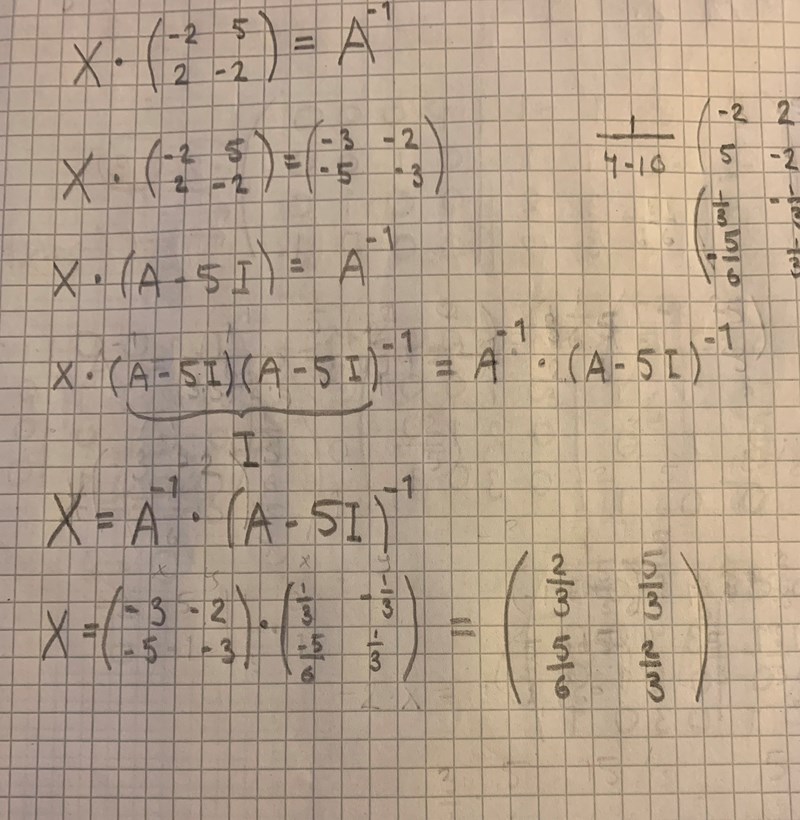 X · (-2 5 / 2 -2) = A⁻¹
X · (-2 5 / 2 -2) = (-3 -2 / -5 -3)
1/(4-10) (-2 2 / 5 -2
(1/3 / -5/6
X · (A - 5I) = A⁻¹
X · (A - 5I)(A - 5I)⁻¹ = A⁻¹ · (A - 5I)⁻¹
I
X = A⁻¹ · (A - 5I)⁻¹
X = (-3 -2 / -5 -3) · (1/3 -1/3 / -5/6 1/3) = (2/3 5/3 / 5/6 2/3)